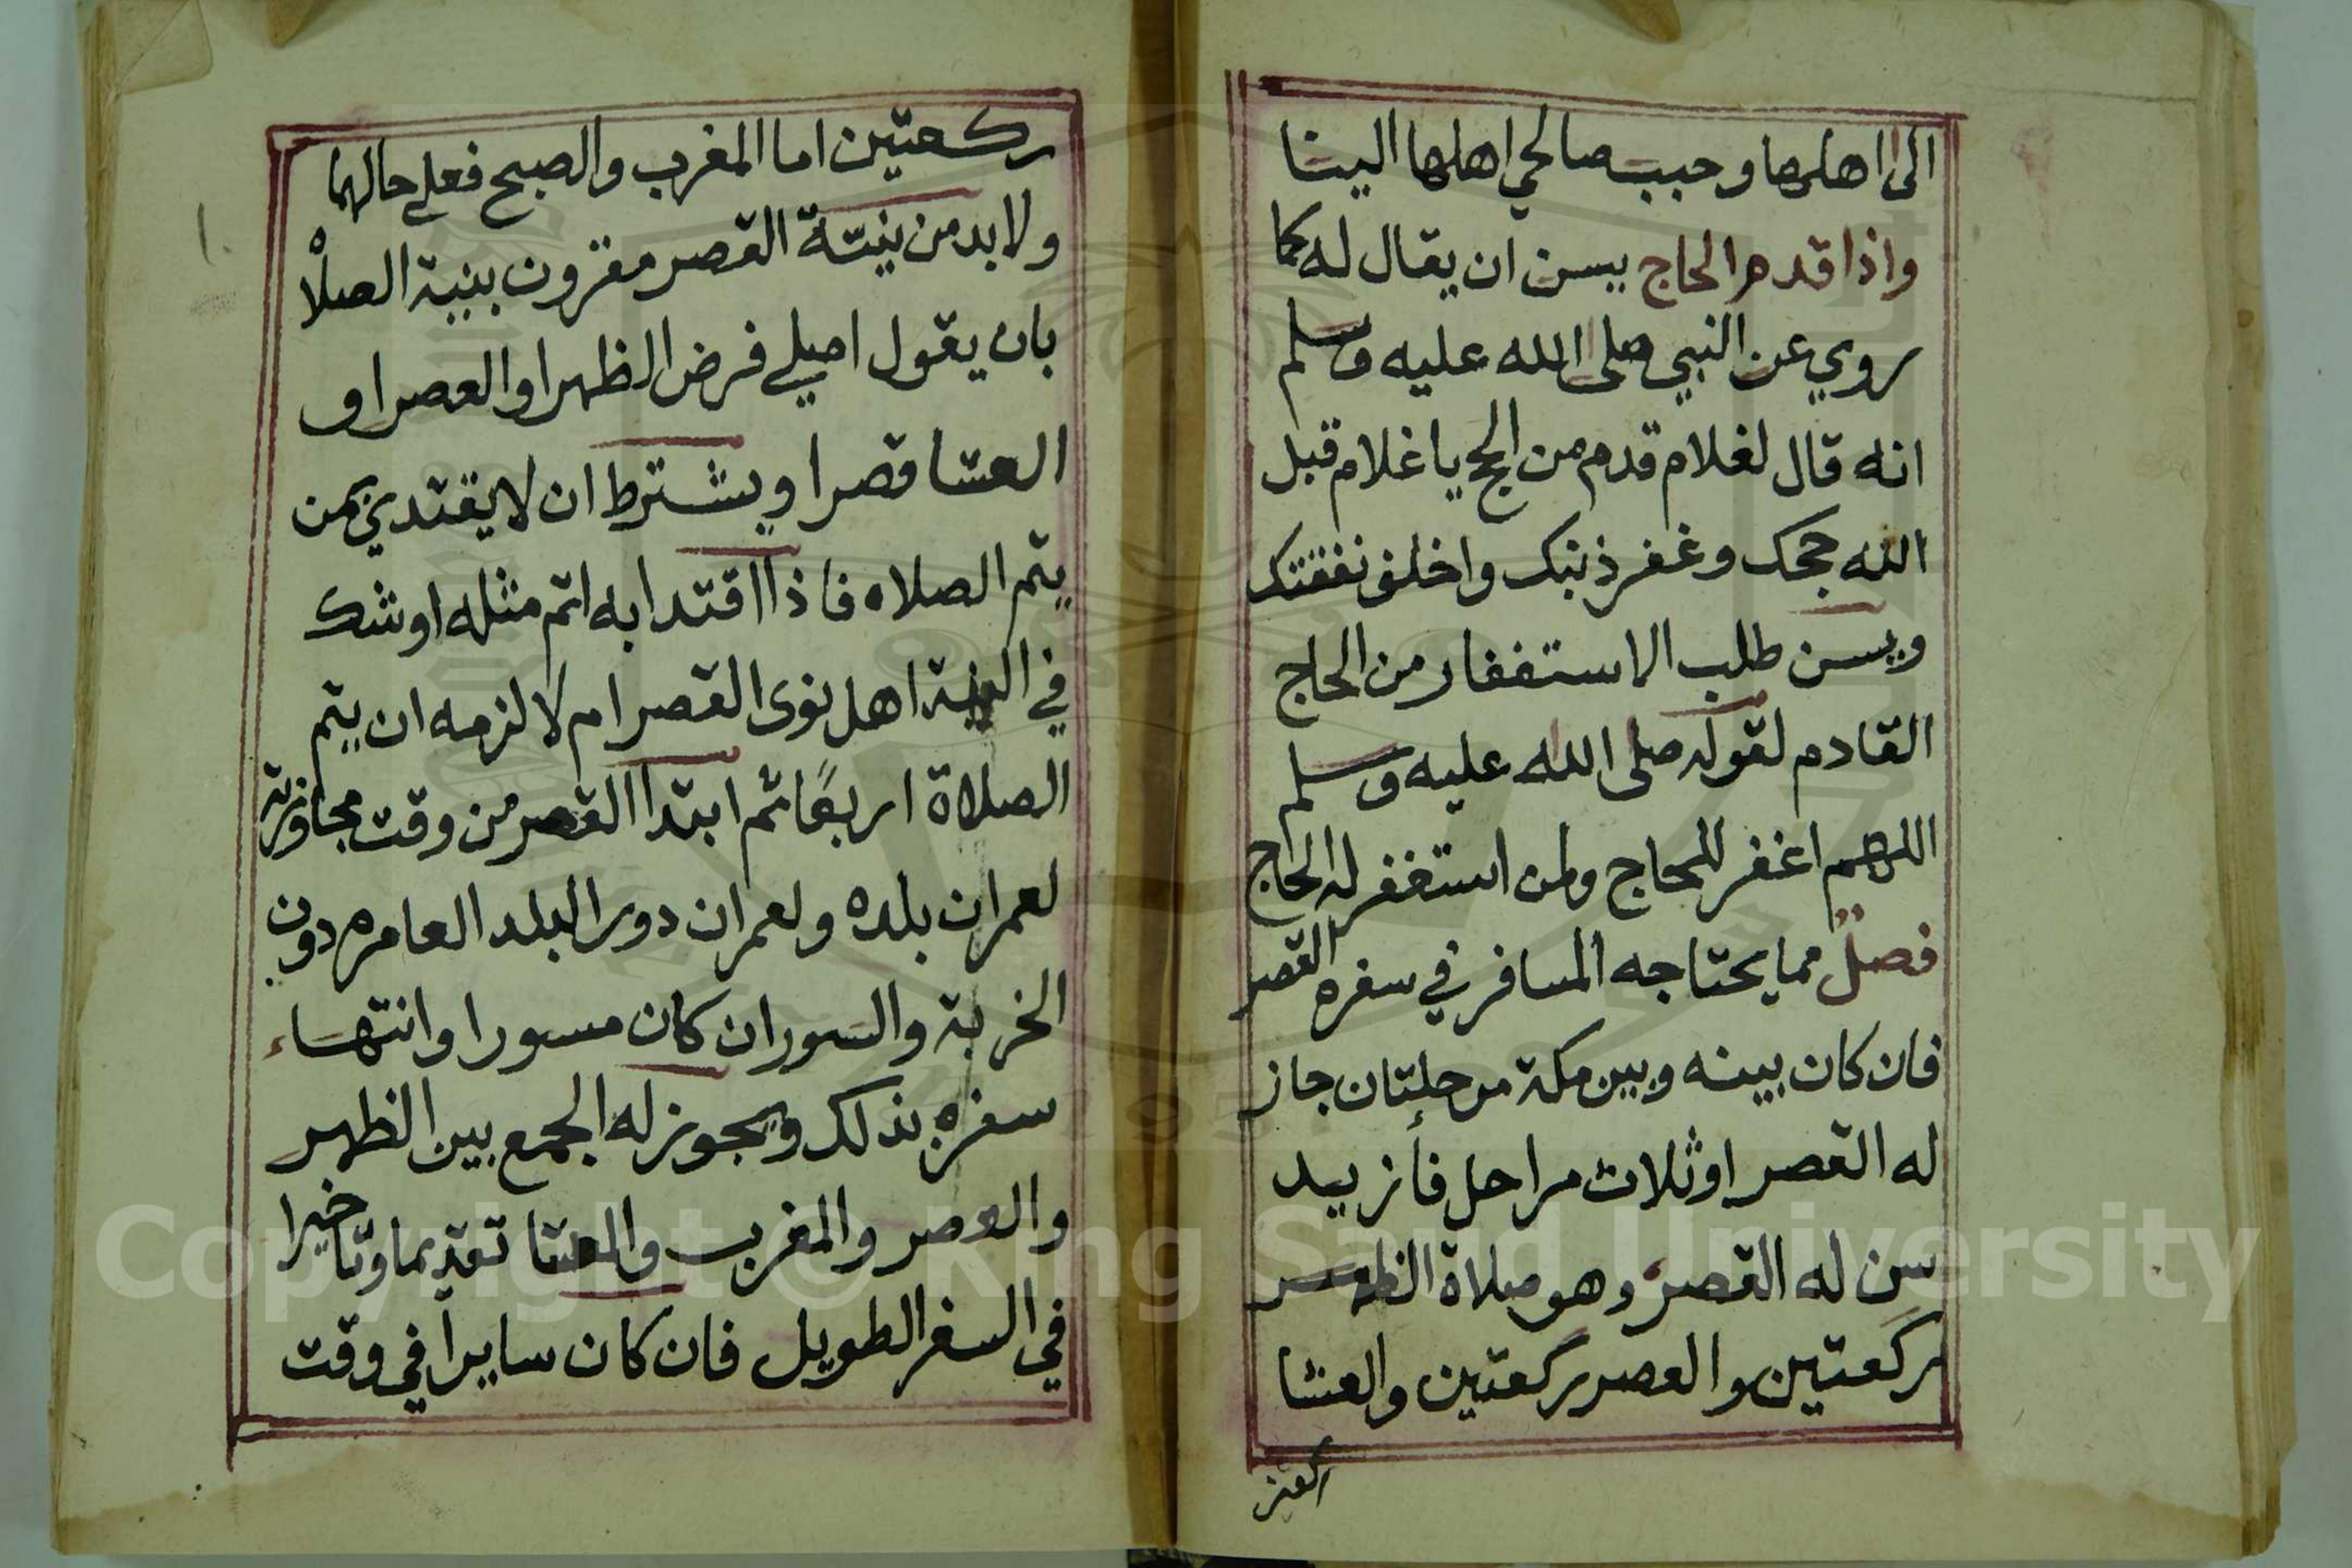 الى اهلها وحبب صالحي اهلها الينا
واذا قدم الحاج يسن ان يقال له كما
روي عن النبي صلى الله عليه وسلم
انه قال لغلام قدم من الحج يا غلام قبل
الله حجك وغفر ذنبك واخلف نفقتك
ويسن طلب الاستغفار من الحاج
القادم لقوله صلى الله عليه وسلم
اللهم اغفر للحاج ولمن استغفر له الحاج
فصل مما يحتاجه المسافر في سفره القصر
فان كان بينه وبين مكة مرحلتان جاز
له القصر او ثلاث مراحل فأزيد
سن له القصر وهو صلاة الظهر
ركعتين والعصر ركعتين والعشا
ركعتين
ركعتين اما المغرب والصبح فعلى حالهما
ولا بد من نيتة القصر مقرون بنية الصلاة
بان يقول اصلي فرض الظهر او العصر او
العشا قصرا ويشترط ان لا يقتدي بمن
يتم الصلاه فاذا اقتدا به اتم مثله او شك
في النية اهل نوى القصر ام لا لزمه ان يتم
الصلاة اربعًا ثم ابتدا القصر من وقت مجاوزته
لعمران بلده ولعمران دور البلد العامره دون
الخربة والسور ان كان مسورا وانتهاء
سفره بذلك ويجوز له الجمع بين الظهر
والعصر والمغرب والعشا تقديما وتاخيرا
في السفر الطويل فان كان سايراً في وقت
١٠
Copyright © King Saud University